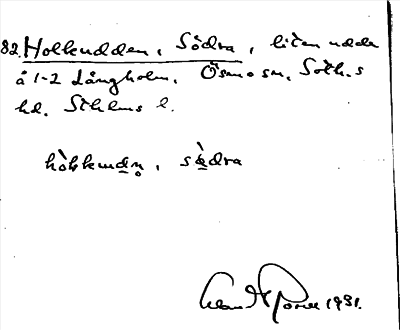 82. Holkudden, Södra, liten udde
å 1-2 Långholm. Ösmo sn, Soth.s
hd. Sthlms l.
hòlkudn̥, sö̀dra
1931.